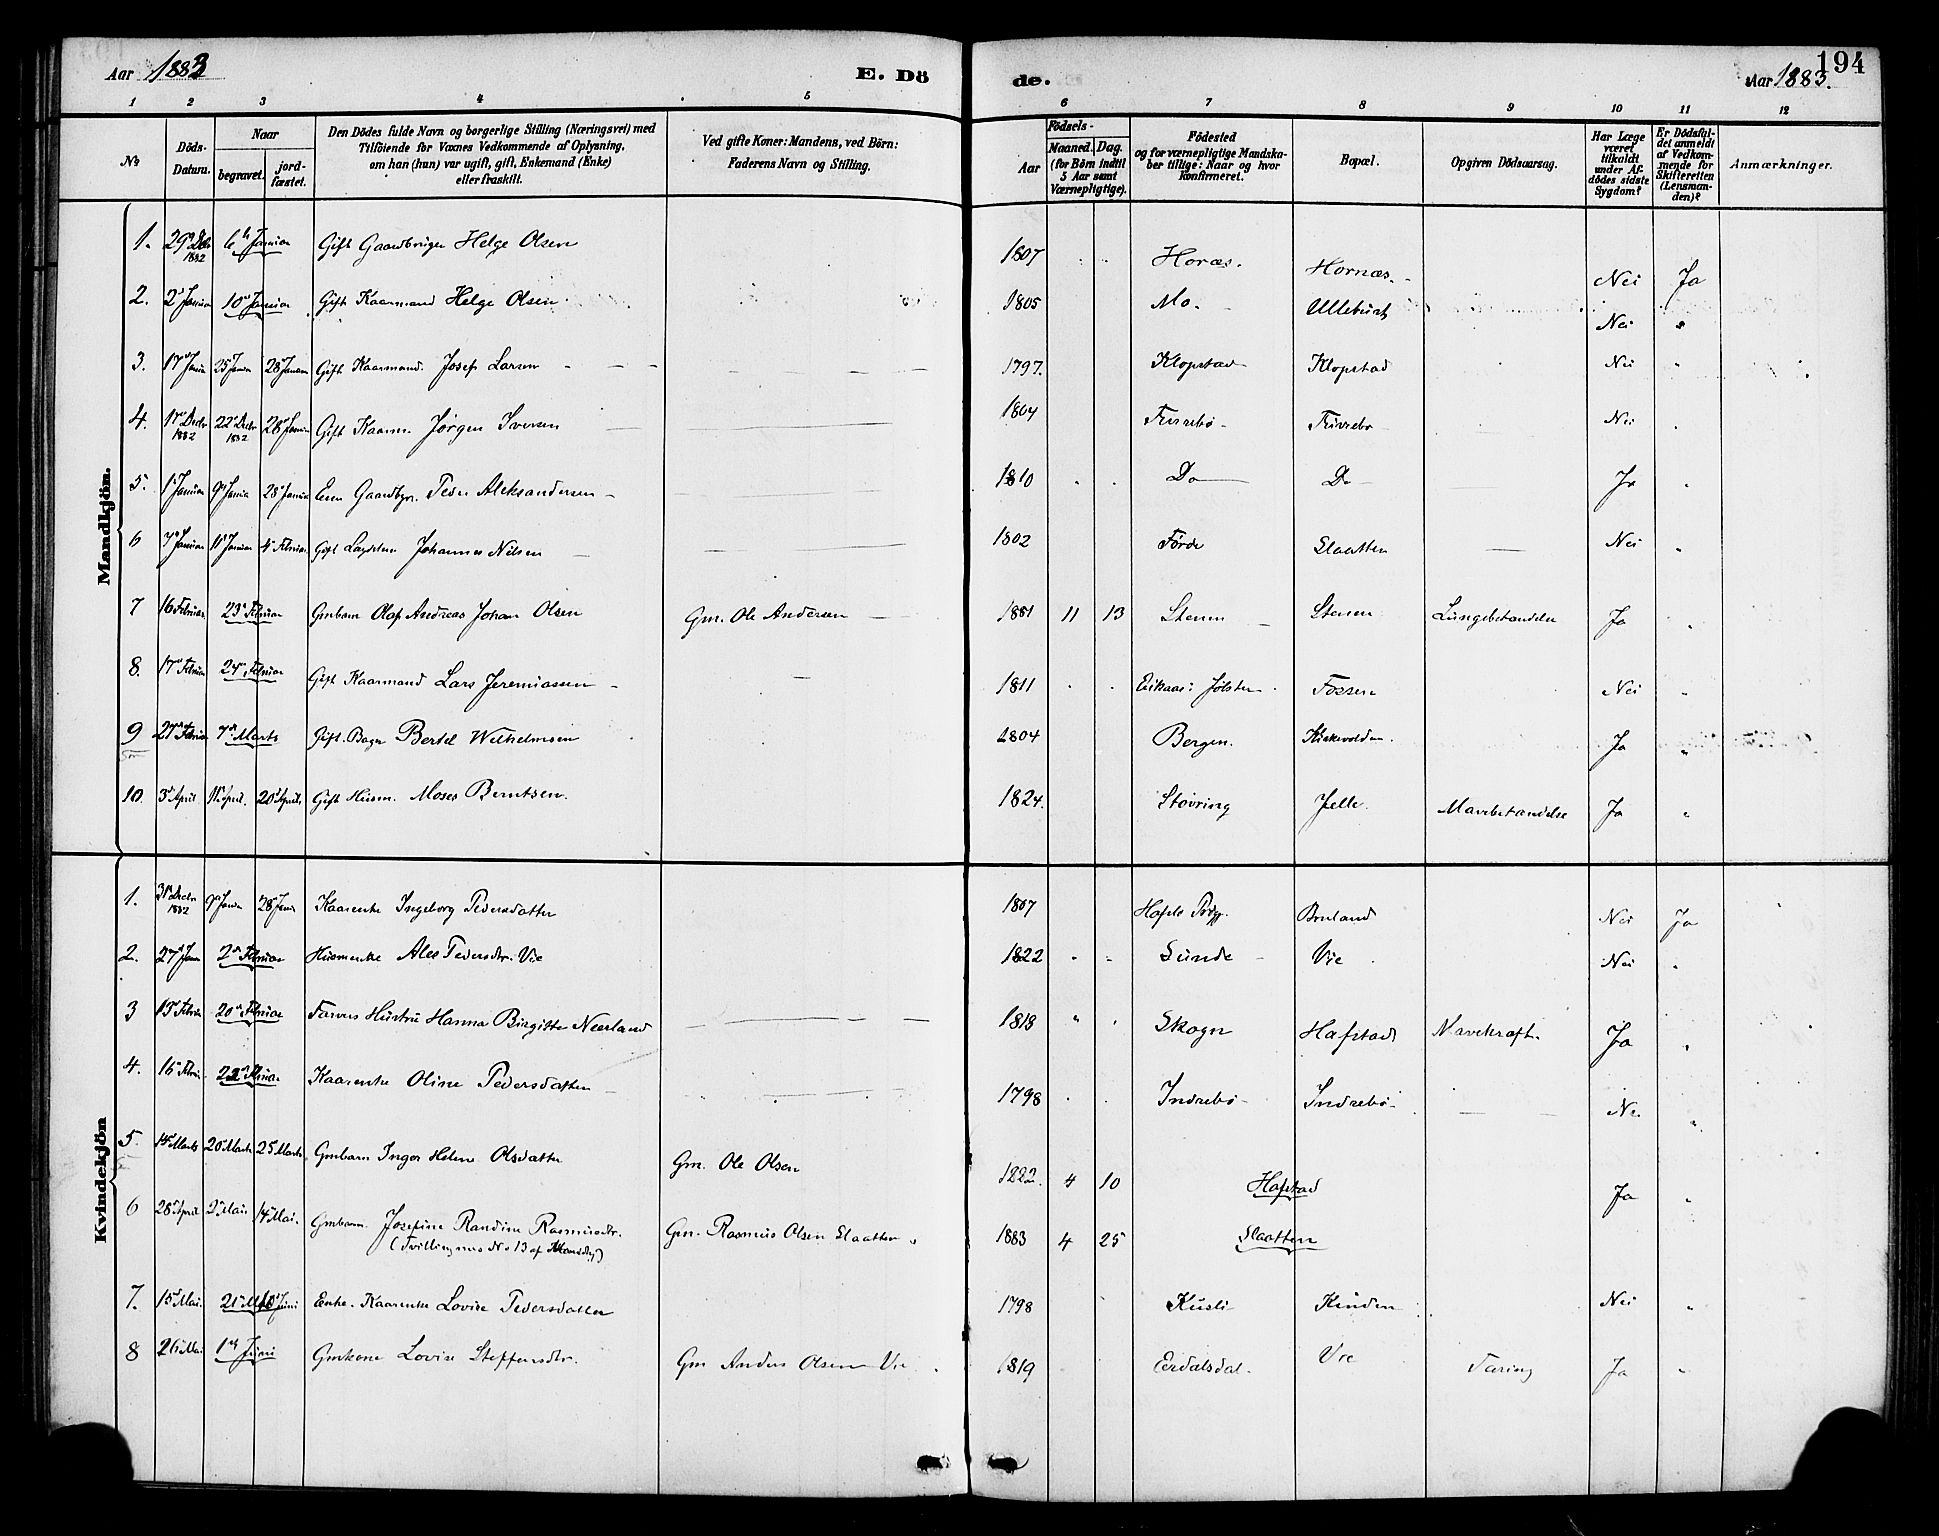 Aar 1883
E. Dö
de.
194
Aar 1883.
1 2 3 4 5 6 7 8 9 10 11 12
№
Döds-
Datum.
Naar
begravet.
jord-
fæstet.
Den Dödes fulde Navn og borgerlige Stilling (Næringsvei) med
Tilföiende for Voxnes Vedkommende af Oplysning,
om han (hun) var ugift, gift, Enkemand (Enke)
eller fraskilt.
Ved gifte Koner: Mandens, ved Börn:
Faderens Navn og Stilling.
Födsels-
Aar
Maaned. Dag.
(for Börn indtil
5 Aar samt
Værnepligtige).
Födested
og for værnepligtige Mandska-
ber tillige: Naar og hvor
Konfirmeret.
Bopæl.
Opgiven Dödsaarsag.
Har Læge
været
tilkaldt
under Af-
dödes sidste
Sygdom?
Er Dödsfal-
det anmeldt
af Vedkom-
mende for
Skifteretten
(Lensman-
den)?
Anmærkninger.
Mandkjön.
1. 29 Dcbr 1882 6 Januar Gift Gaardbruger Helge Olsen 1807 Horæs. Hornæs. Nei Ja
2. 2 Januar 10 Januar Gift Kaarmand Helge Olsen 1805 Mo Ulleburst Nei "
3. 17 Janua 25 Janua 28 Januar Gift Kaarmand. Josef Larsen 1797. Klopstad Klopstad Nei "
4. 17 Decbr 1882 22 Decbr 1882 28 Januar Gift Kaarm. Jørgen Iversen 1804 Furrebø Furrebø Nei "
5. 1 Januar 9 Janua 28 Janua Gaardbgr. Peder Aleksandersen 1810 Do Do Ja "
6 7 Januar 11 Januar 4 Februar Gift Johannes Nilsen 1802 Førde Slaatten Nei "
7 16 Februar 23 Februar Gmbarn Olaf Andreas Johan Olsen Gm. Ole Andersen 1881 11 13 Stenen Stenen Lungebetændelse Ja "
8. 17 Februar 24 Februar Gift Kaarmand Lars Jeremiassen 1811 Eikaas: Jølster Fossen Nei "
9 27 Februar 7 Marts Gift. Bager Bertel Wilhelmsen 1804 Bergen. Kirkevolden. Ja "
10. 3 April 11 April. 20 April Gift Husm. Moses Berntsen. 1824. Støvring Jelle. Mavebetændelse Ja "
Kvindekjön
1. 31 Decbr 1882 9 Janua 28 Janua Kaarenke Ingeborg Pedersdatter 1807 Bruland Nei Ja
2. 27 Jan 2 Februar Husmenke Ales Pedersdtr. Vie 1822 Sunde Vie Nei "
3 13 Februar 20 Februar Hustru Hanna Birgitte Neerland 1818 Skogn Hafstad Mavekræft. Ja "
4. 16 Februar 22 Februar Kaarenke Oline Pedersdatter 1798 Indrebø Indrebø Nei "
5. 14 Marts 20 Marts 25 Marts Gmbarn Inger Helene Olsdatter Gm. Ole Olsen 1882. 4 10 Hafstad Ja "
6 28 April 2 Mai 14 Mai. Gmbarn. Josefine Randine Rasmusdtr. Gm. Rasmus Olsen Slaatten 1883 4 25 Slaatten
(Tvilling med No 13 af Mandkj)
7. 15 Mai. 21 Mai 10 Juni Enke. Kaarenke Lovise Pedersdatter 1798 Kusli Kinden Nei "
8 26 Mai 1 Juni Gmkone Lovise Steffensdtr. Gm Anders Olsen Vie 1819 Erdalsdal. Vie Tæring Ja "